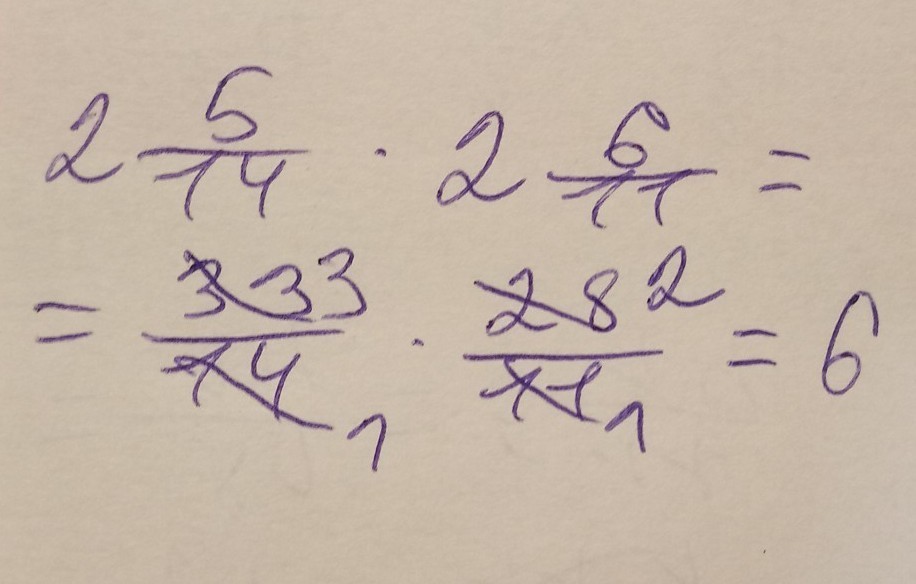 2 5/14 · 2 6/11 =
= 33/14 3/1 · 28/11 2/1 = 6